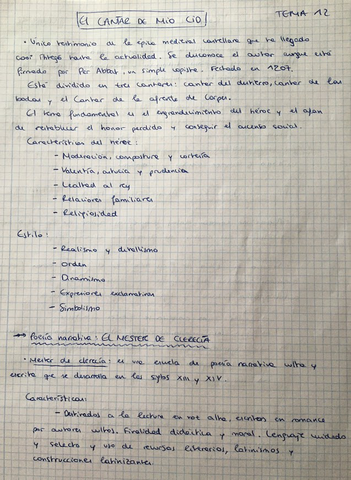 EL CANTAR DE MIO CID
TEMA 12
• Único testimonio de la épica medieval castellana que ha llegado
casi íntegro hasta la actualidad. Se desconoce el autor aunque está
firmado por Per Abbat, un simple copista. Fechado en 1207.
Está dividido en tres cantares: cantar del destierro, cantar de las
bodas y el Cantar de la afrenta de Corpes.
El tema fundamental es el engrandecimiento del héroe y el afán
de restablecer el honor perdido y conseguir el ascenso social.
Características del héroe:
- Moderación, compostura y cortesía
- Valentía, astucia y prudencia
- Lealtad al rey
- Relaciones familiares
- Religiosidad
Estilo:
- Realismo y detallismo
- Orden
- Dinamismo
- Expresiones exclamativas
- Simbolismo
→ Poesía narrativa: EL MESTER DE CLERECÍA
• Mester de clerecía: es una escuela de poesía narrativa culta y
escrita que se desarrolla en los siglos XIII y XIV.
Características:
- Destinados a la lectura en voz alta, escritos en romance
por autores cultos. Finalidad didáctica y moral. Lenguaje cuidado
y selecto y uso de recursos literarios, latinismos y
construcciones latinizantes.